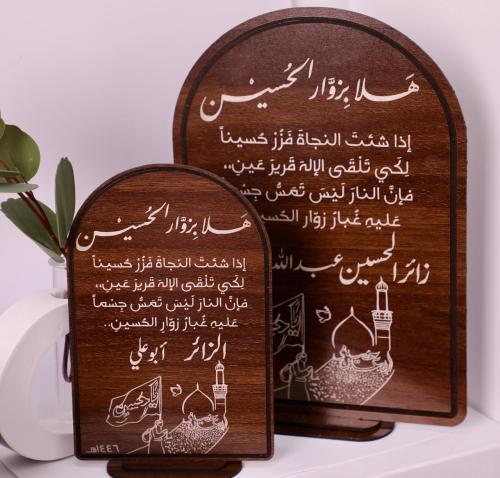 هَلا بِزوَّار الحُسَين
إذا شئتَ النجاةَ فَزُرْ حُسيناً
لِكَي تَلْقَى الإلهَ قَريرَ عَينِ،،
فإنْ النارَ لَيْسَ تَمَسُّ جِسْماً
عَليهِ غُبارُ زوّارِ الحُسينِ..
الزائر أبو علي
يا حسين
١٤٤٦هـ
هَلا بِزوَّار الحُسَين
إذا شئتَ النجاةَ فَزُرْ حُسيناً
لِكَي تَلْقَى الإلهَ قَريرَ عَينِ،،
فإنْ النارَ لَيْسَ تَمَسُّ
عَليهِ غُبارُ زوّارِ
زائر الحسين عبدالله